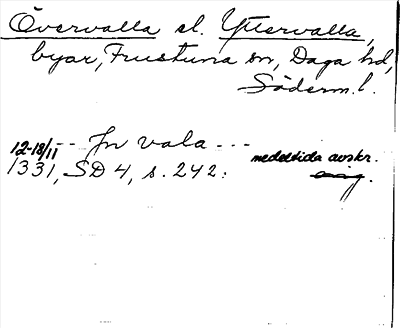 Övervalla el. Yttervalla,
byar, Frustuna sn, Daga hd,
Söderm. l.
-- Jn vala ---
12-18/11 1331, SD 4, s. 242. medeltida avskr.